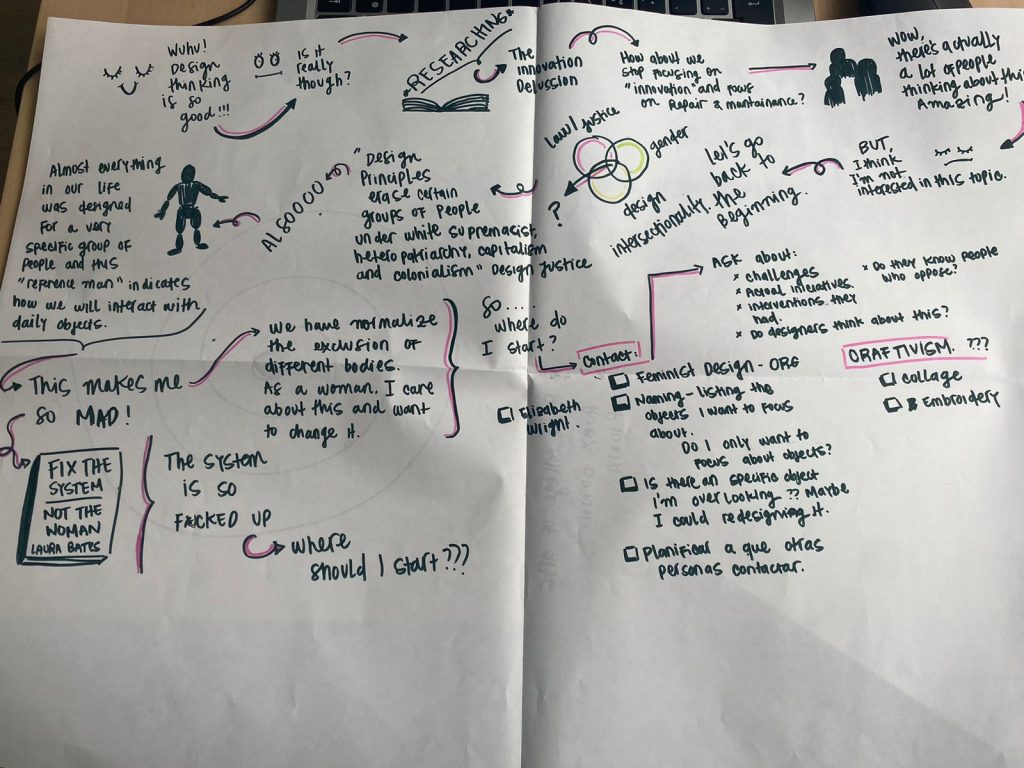 Wuhu!
Design
thinking
is so
good!!!
Is it
really
though?
*RESEARCHING*
The
Innovation
Delussion
How about we
stop focusing on
"innovation" and focus
on Repair & mantainance?
WOW,
there's actually
a lot of people
thinking about this
Amazing!
BUT,
I think
I'm not
interested in this topic.
Let's go
back to
the
Beginning.
intersectionality,
Law/Justice
gender
design
?
"Design
Principles
erase certain
groups of People
under white supremacist,
heteropatriarchy, capitalism
and colonialism" Design Justice
ALSOOOO
Almost everything
in our life
was designed
For a very
specific group of
People and this
"reference man" indicates
how we will interact with
daily objects.
This makes me
so MAD!
we have normalize
the exclusion of
different bodies.
As a woman, I care
about this and want
to change it.
FIX THE
SYSTEM
NOT THE
WOMAN
LAURA BATES
The system
is so
F*CKED UP
where
should I start???
So....
where do
I start?
Contact:
Elizabeth
Wright.
Feminist Design - ORG
Naming - listing the
objects I want to focus
about.
Do I only want to
focus about objects?
Is there an specific object
I'm overlooking?? Maybe
I could redesigning it.
Planificar a que otras
personas contactar.
ASK about:
× challenges
× Actual iniciatives.
× interventions they
had.
× Do designers think about this?
× Do they know people
who oppose?
CRAFTIVISM. ???
Collage
Embroidery